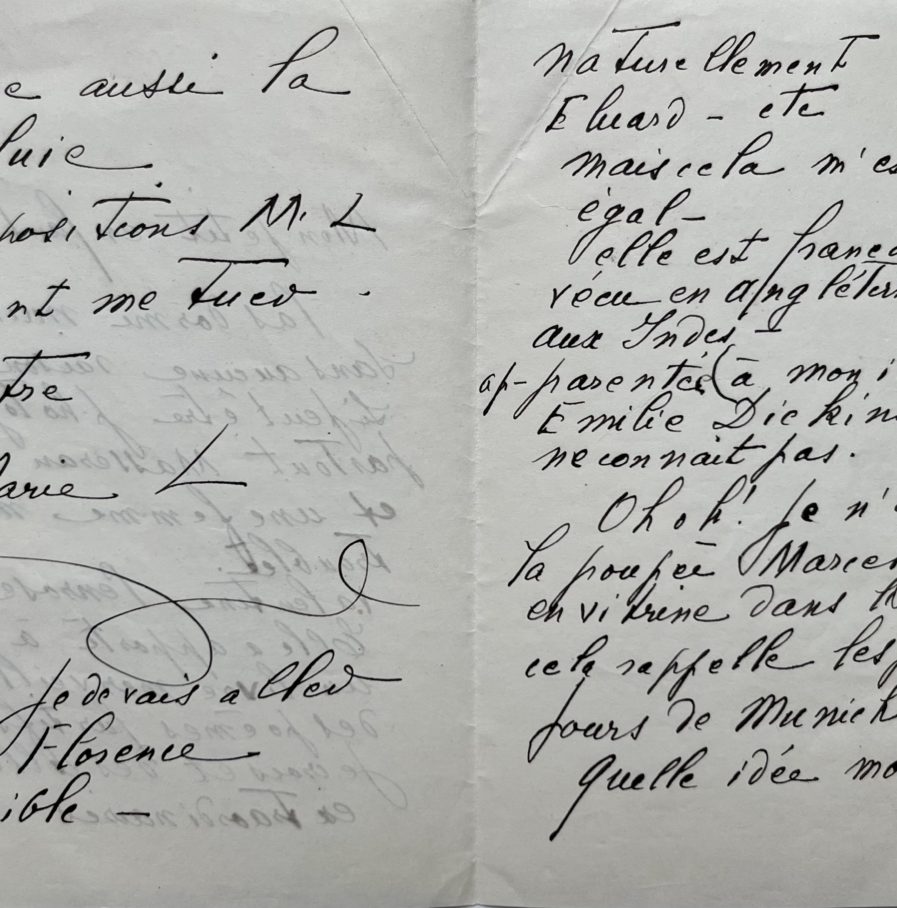 e aussi la
luie
positions M. L
nt me tuer.
tre
arie L
je devais aller
Florence
ible —
naturellement
Eluard - etc
mais cela m'es
égal -
elle est franç
vécu en Anglèter
aux Indes -
ap-parentée (à mon i
Emilie Dickin
ne connait pas.
Oh oh! je n'
la poupée Marce
en vitrine dans l
cela rappelle les
jours de Munich
quelle idée mo